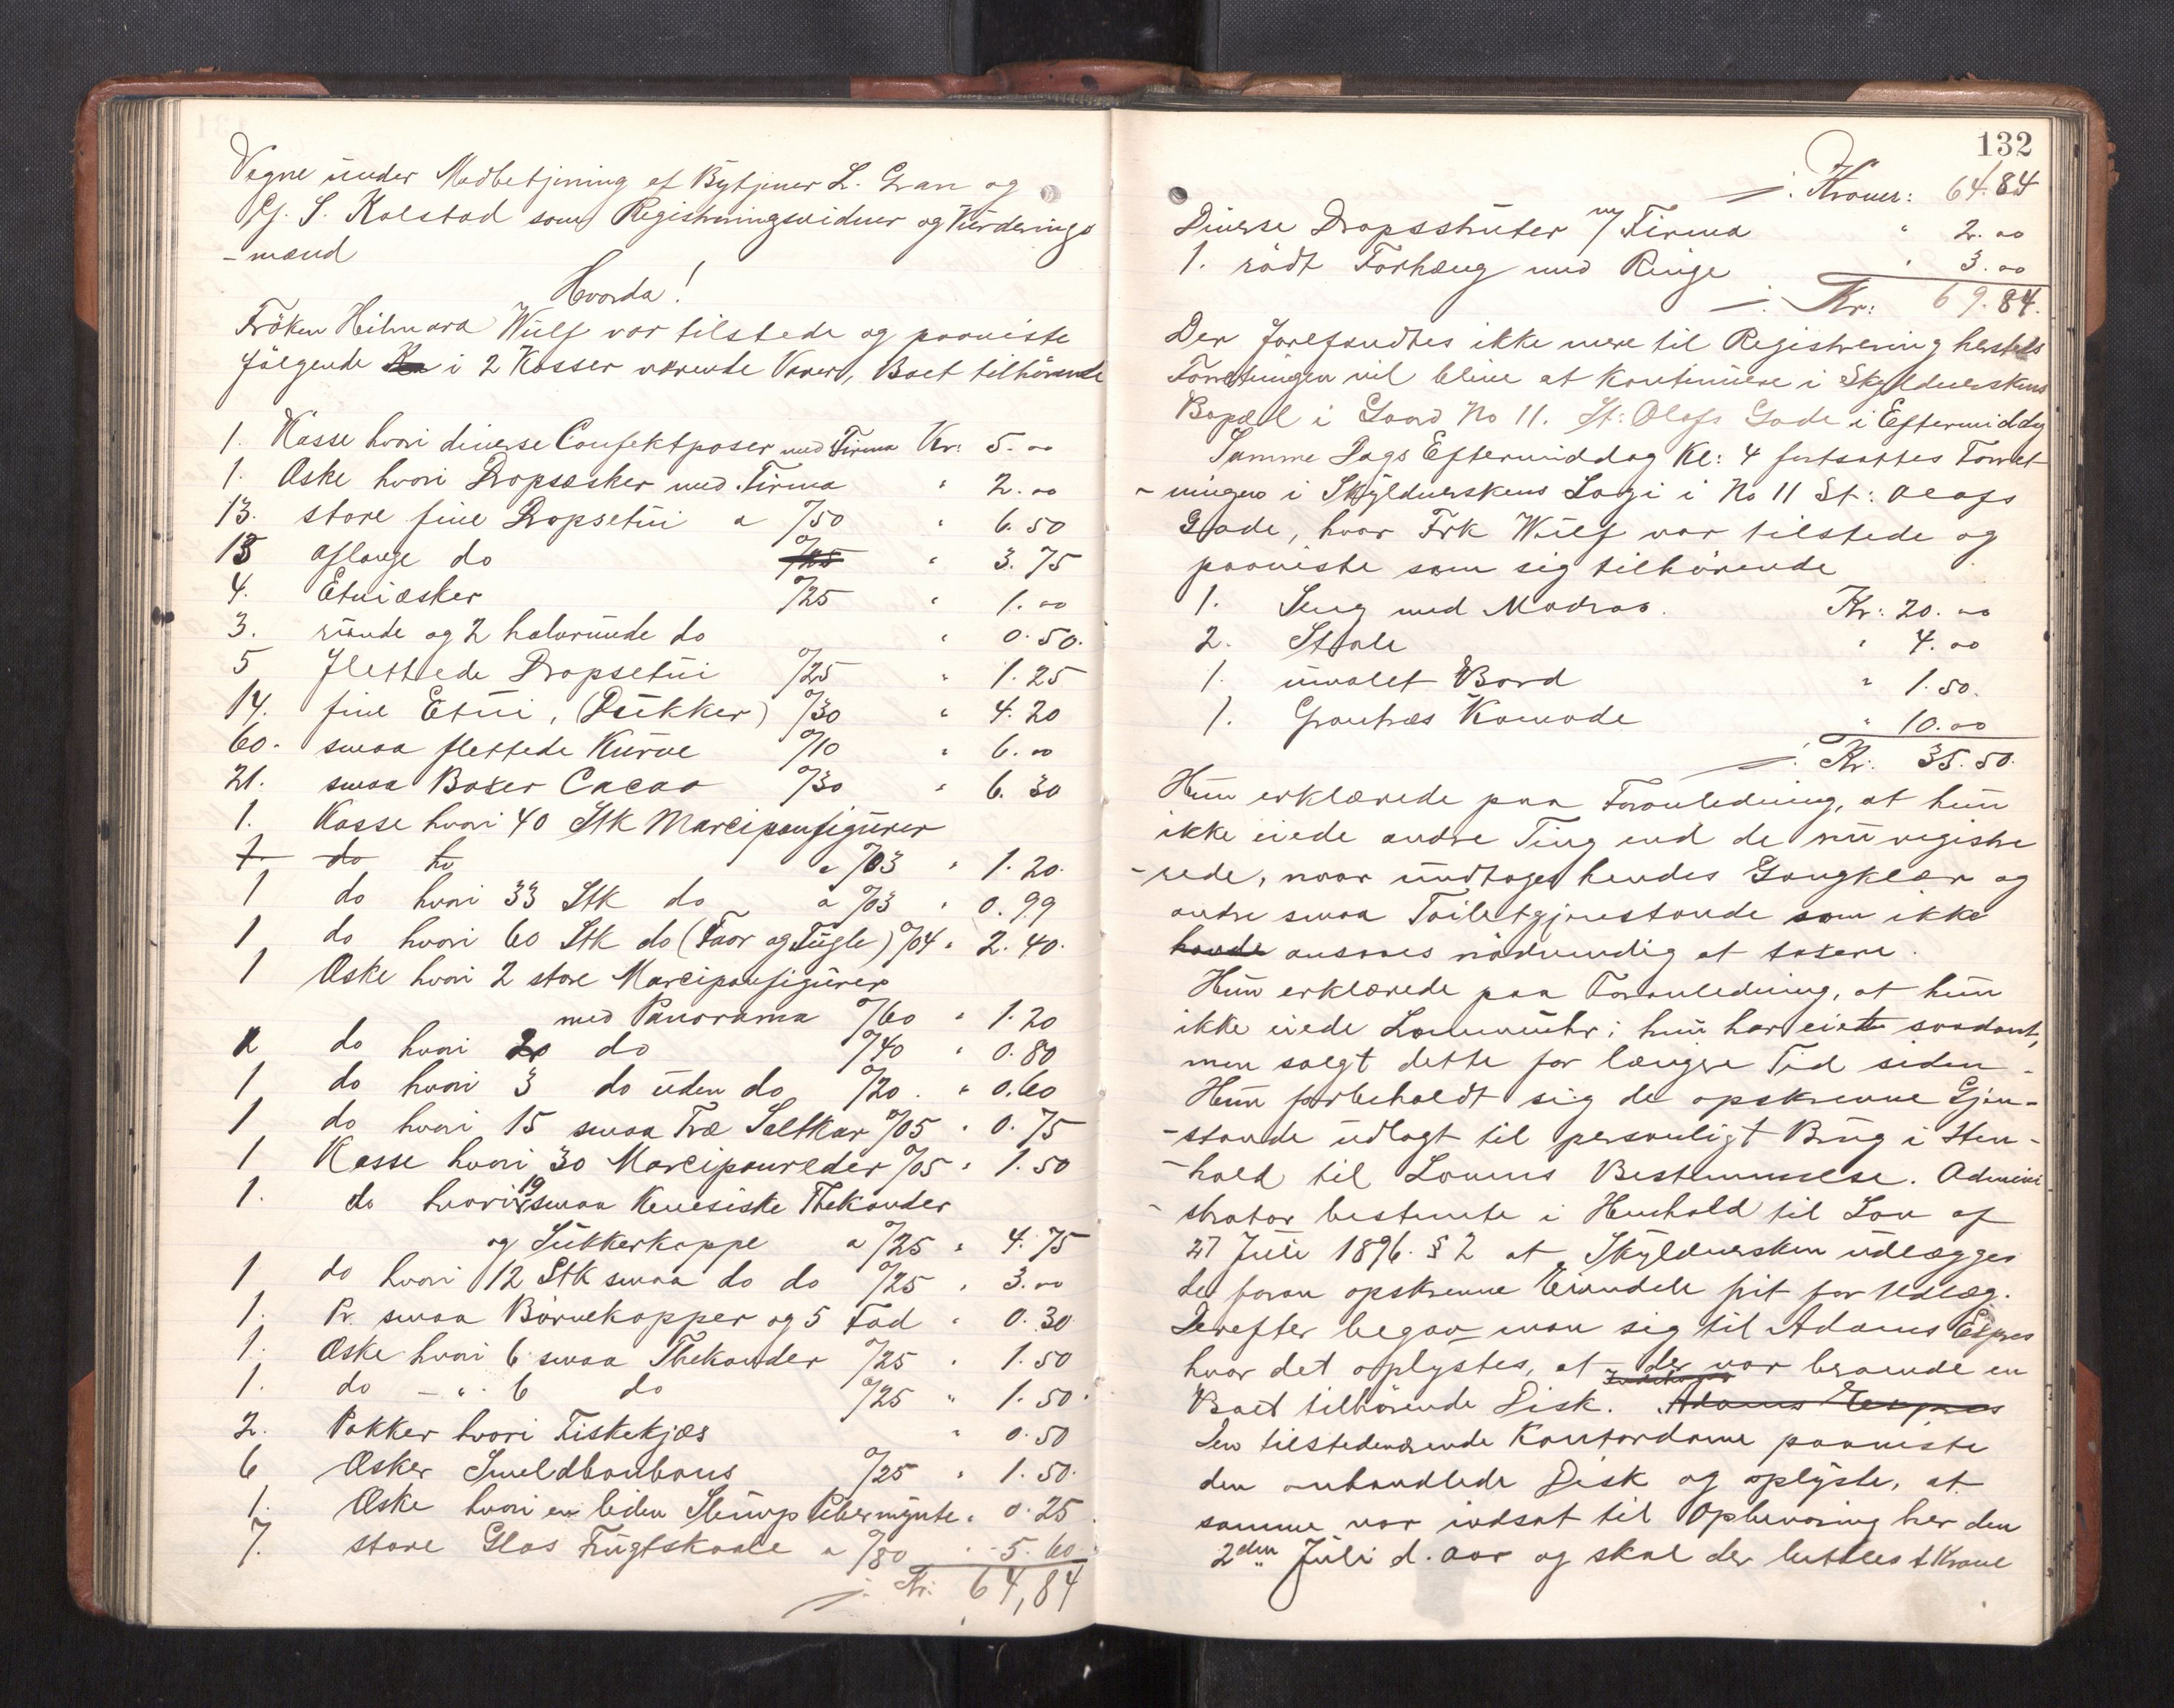 Vegne under Medbetjening af Bytjener L. Gran og
G. S. Kolstad som Registreringsvidner og Vurderings
-mænd
Hvorda!
Fröken Hilmara Wülf var tilstede og paaviste
følgende i 2 Kasser værende Varer, Boet tilhörende
1. Kasse hvori diverse Confektposer med Firma Kr: 5.00
1. Æske hvori Dropsæsker med Firma " 2.00
13. store fine Dropsetui a %50 " 6.50
15 aflange do %25 " 3.75
4. Etuiæsker %25 " 1.00
3. runde og 2 halvrunde do " 0.50.
5 flettede Dropsetui %25 " 1.25
14. fine Etui, (Dukker) %30 " 4.20
60. smaa flettede Kurve %10 " 6.00
21. smaa Boxer Cacao %30 " 6.30
1. Kasse hvori 40 Stk Marcipanfigurer
1. do hv a %03 " 1.20.
1 do hvori 33 Stk do a %03 " 0.99
1 do hvori 60 Stk do (Faar og Fugle) %04 " 2.40.
1 Æske hvori 2 store Marcipanfigurer
med Panorama %60 " 1.20
1 do hvori 2 do %40 " 0.80
1 do hvori 3 do uden do %20. " 0.60
1 do hvori 15 smaa Træ Saltkar %05 " 0.75
1 Kasse hvori 30 Marcipanreder %05 " 1.50
1. do hvori 19 smaa Kinesiske Thekander
og Sukkerkoppe a %25 " 4.75
1 do hvori 12 Stk smaa do do %25 " 3.00
1. Pr. smaa Börnekopper og 5 Fad " 0.30
1. Æske hvori 6 smaa Thekander %25 " 1.50
1. do - " - 6 do %25 " 1.50.
2. Pakker hvori Fiskekjæs " 0.50
6 Æsker Smeldbonbons %25 " 1.50.
1. Æske hvori en liden Slump Pebermynte " 0.25
7. store Glas Frugtskaale a %80 " 5.60
Kr: 64,84
132
Kroner: 64.84
Diverse Dropsstruter m/ Firma " 2.00
1. rödt Forhæng med Ringe " 3.00
Kr: 69.84.
Der forefandtes ikke mere til Registrering hersteds
Forretningen vil blive at kontinuere i Skyldnerskens
Bopæl i Gaard No 11. St: Olafs Gade i Eftermiddag
Samme Dags Eftermiddag Kl: 4 fortsattes Forret-
-ningen i Skyldnerskens Logi i No 11 St: Olafs
Gade, hvor Frk Wülf var tilstede og
paaviste som sig tilhörende
1. Seng med Madras. Kr: 20.00
2. Stole " 4.00
1. umalet Bord " 1.50.
1. Grantræs Komode " 10.00
Kr: 35.50.
Hun erklærede paa Foranledning, at hun
ikke eiede andre Ting end de nu registre
-rede, naar undtages hendes Gangklær og
andre smaa Toiletgjenstande som ikke
havde ansaaes nödvendig at taxere.
Hun erklærede paa Foranledning, at hun
ikke eiede Lommeuhr; hun har eiet saadant,
men solgt dette for længere Tid siden.
Hun forbeholdt sig de opskrevne Gjen-
-stande udlagt til personligt Brug i Hen-
-hold til Lovens Bestemmelse. Admini-
-strator bestemte i Henhold til Lov af
27 Juli 1896. § 2 at Skyldnersken udlægges
de foran opskrevne Eiendele frit for Udlæg.
Derefter begav man sig til Adams Expres
hvor det oplystes, at der var beroende en
Boet tilhörende Disk. Adams Expres
Den tilstedeværende Kontordame paaviste
den omhandlede Disk og oplyste, at
samme var indsat til Opbevaring her den
2den Juli d. aar og skal der betales 1 Krone